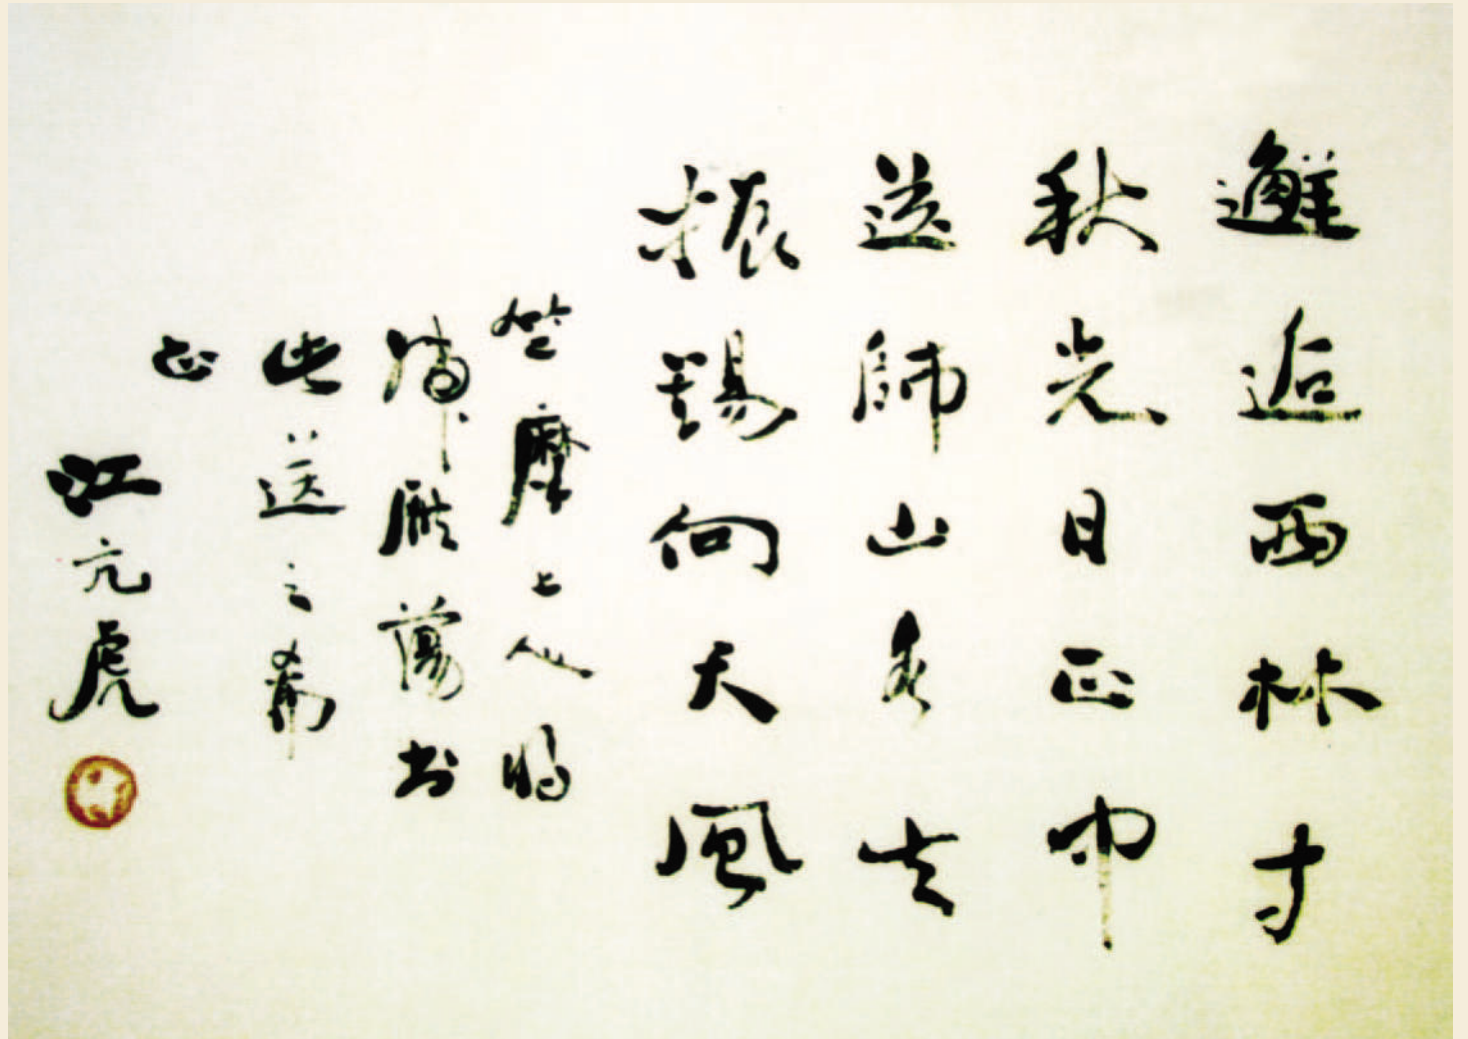 邂逅西林寺
秋光日正中
送師山去
振錫向天風
竺摩上人將
歸雁蕩書
此送之希
正
江亢虎